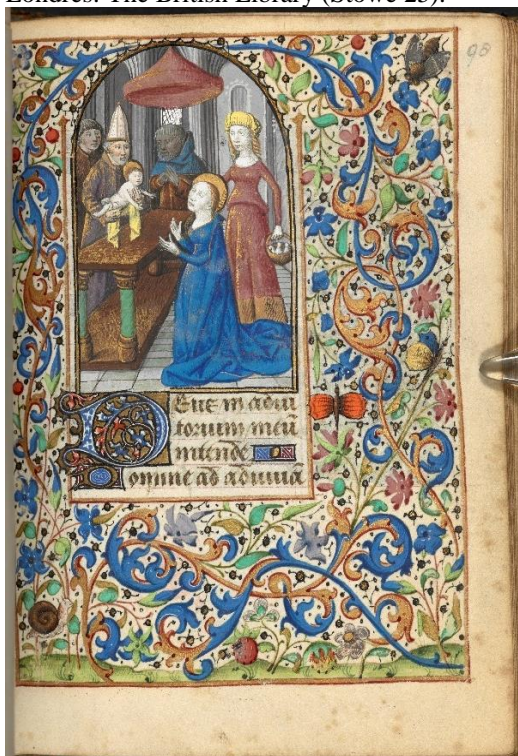 Londres: The British Library (Stowe 25).
98
Deus in adiu
torium meū
intende
Domine ad adiuuā